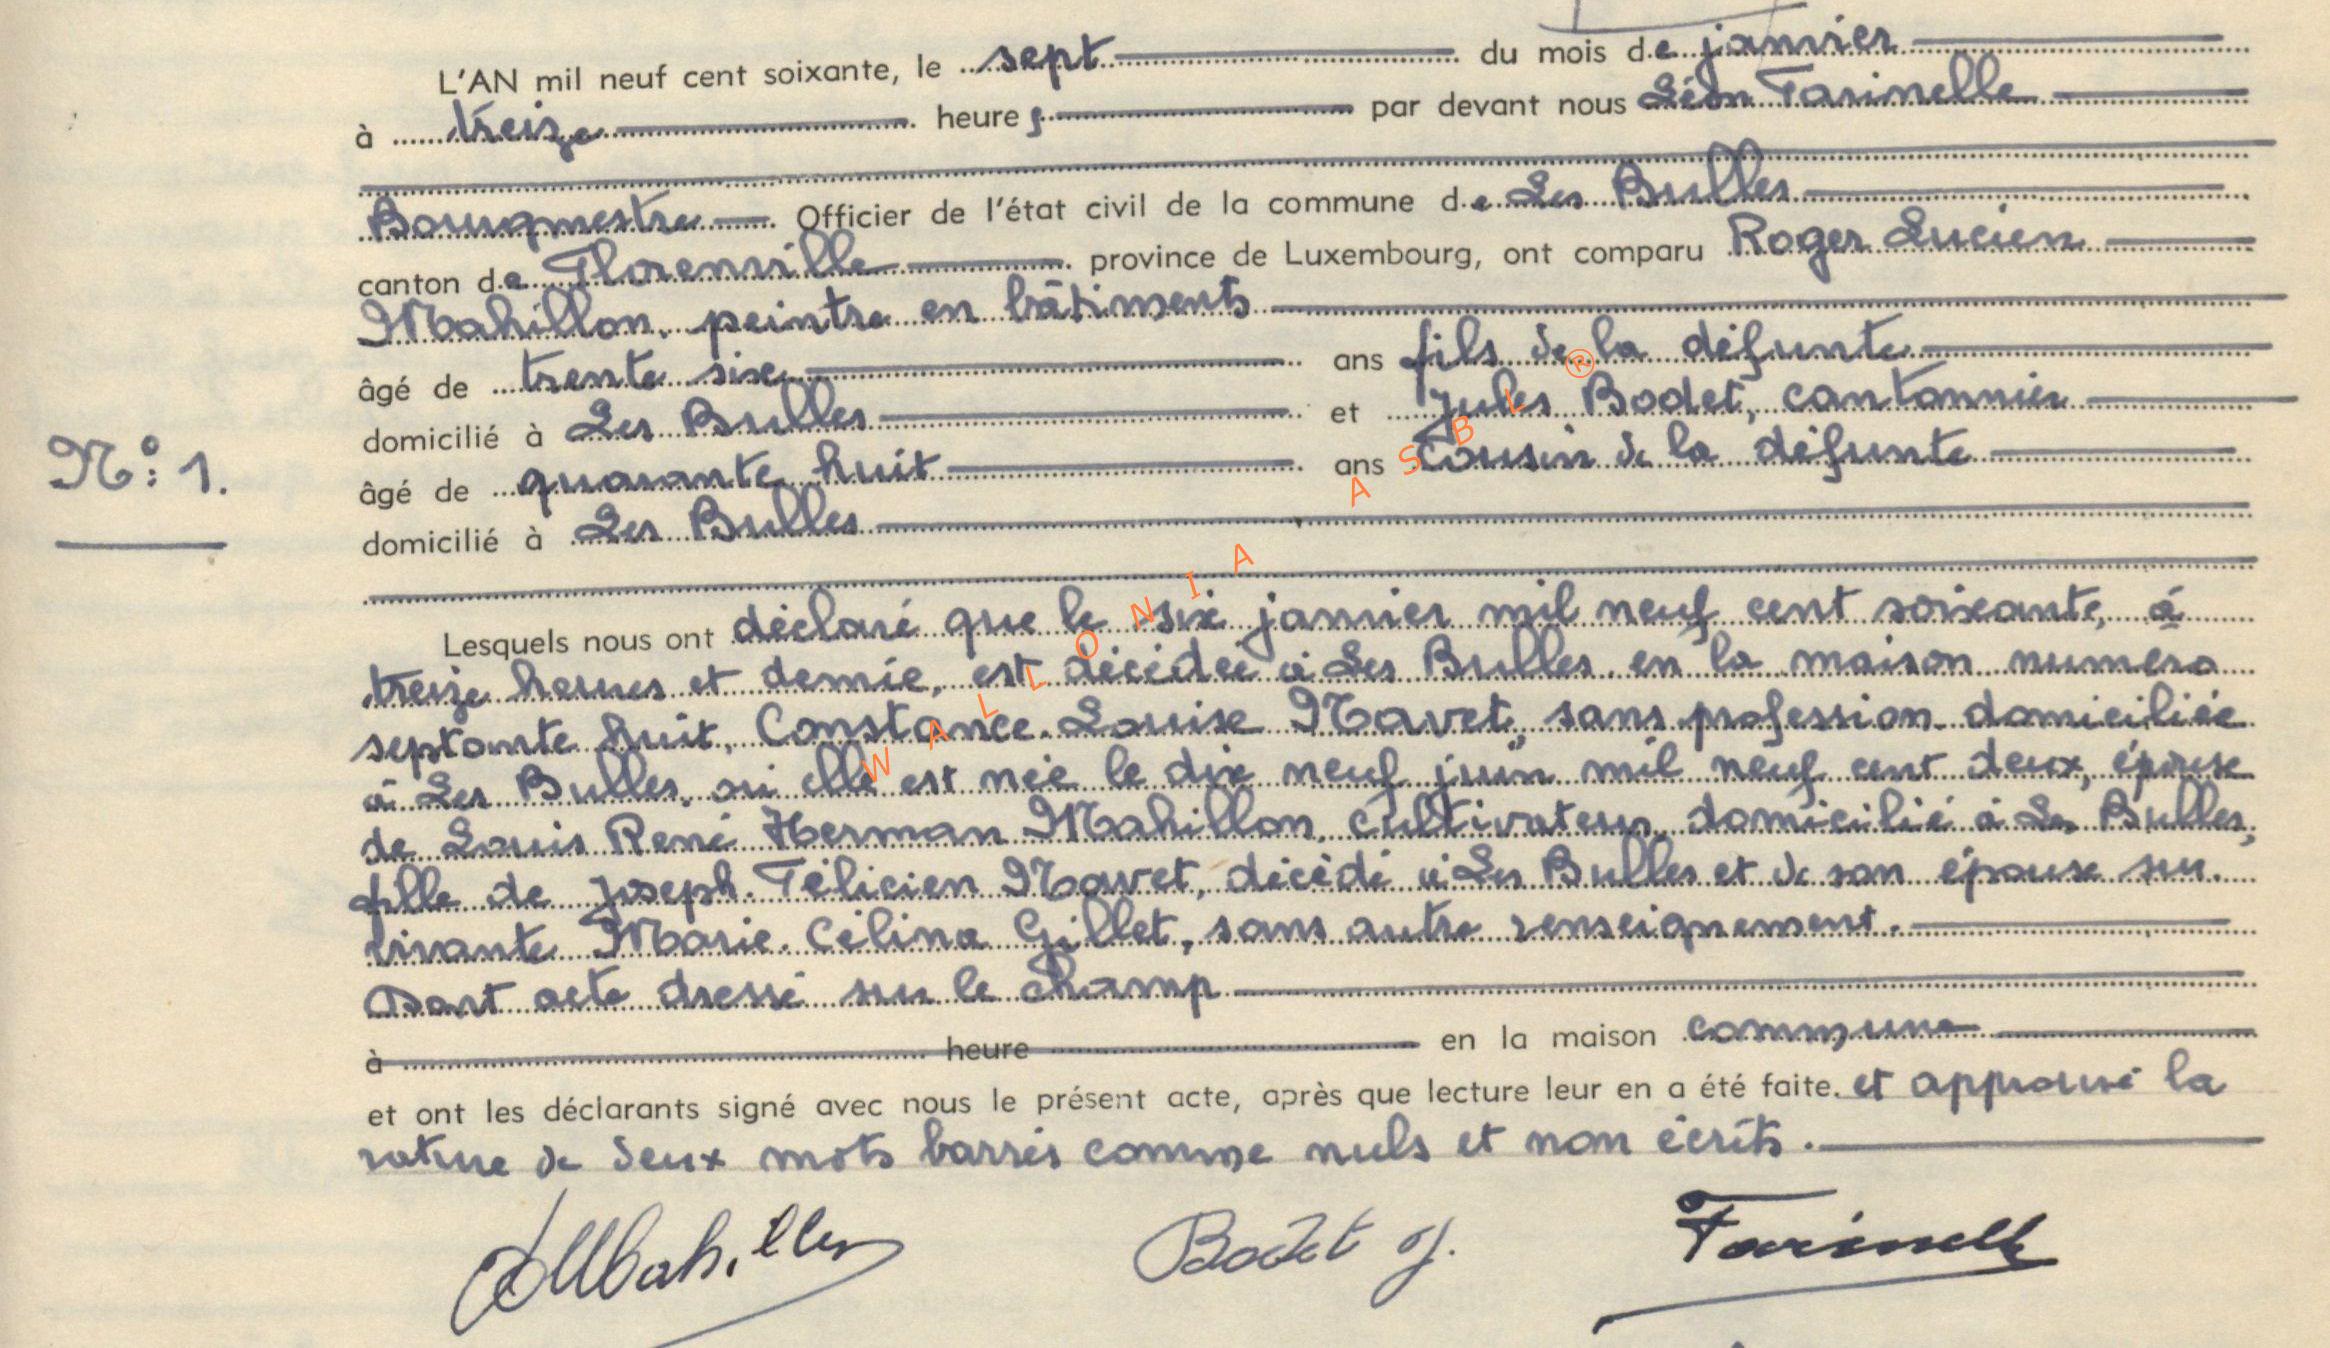 L'AN mil neuf cent soixante, le sept du mois de janvier
à treize heures par devant nous Léon Farinelle
Bourgmestre Officier de l'état civil de la commune de Les Bulles
canton de Florenville province de Luxembourg, ont comparu Roger Lucien
Mahillon, peintre en bâtiments
âgé de trente six ans fils de la défunte
domicilié à Les Bulles et Jules Bodet, cantonnier
N°: 1.
âgé de quarante huit ans cousin de la défunte
domicilié à Les Bulles
Lesquels nous ont déclaré que le six janvier mil neuf cent soixante, à
treize heures et demie, est décédée à Les Bulles en la maison numéro
septante huit, Constance Louise Navet, sans profession domiciliée
à Les Bulles, où elle est née le dix neuf juin mil neuf cent deux, épouse
de Louis René Herman Mahillon, cultivateur, domicilié à Les Bulles,
fille de Joseph Félicien Navet, décédé à Les Bulles et de son épouse sur-
vivante Marie Célina Gillet, sans autre renseignement.
Dont acte dressé sur le champ
à heure en la maison commune
et ont les déclarants signé avec nous le présent acte, après que lecture leur en a été faite. et approuvé la
rature de deux mots barrés comme nuls et non écrits.
Mahillon Bodet J. Farinelle
WALLONIA ASBL ®